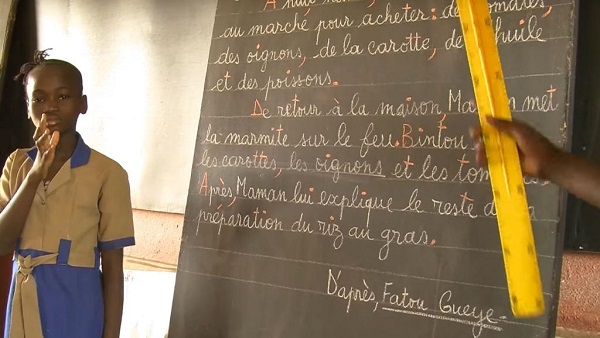 A huit
au marché pour acheter: des tomates,
des oignons, de la carotte, de l'huile
et des poissons.
De retour à la maison, Maman met
la marmite sur le feu. Bintou
les carottes, les oignons et les tomates.
Après, Maman lui explique le reste de la
préparation du riz au gras.
D'après, Fatou Gueye.